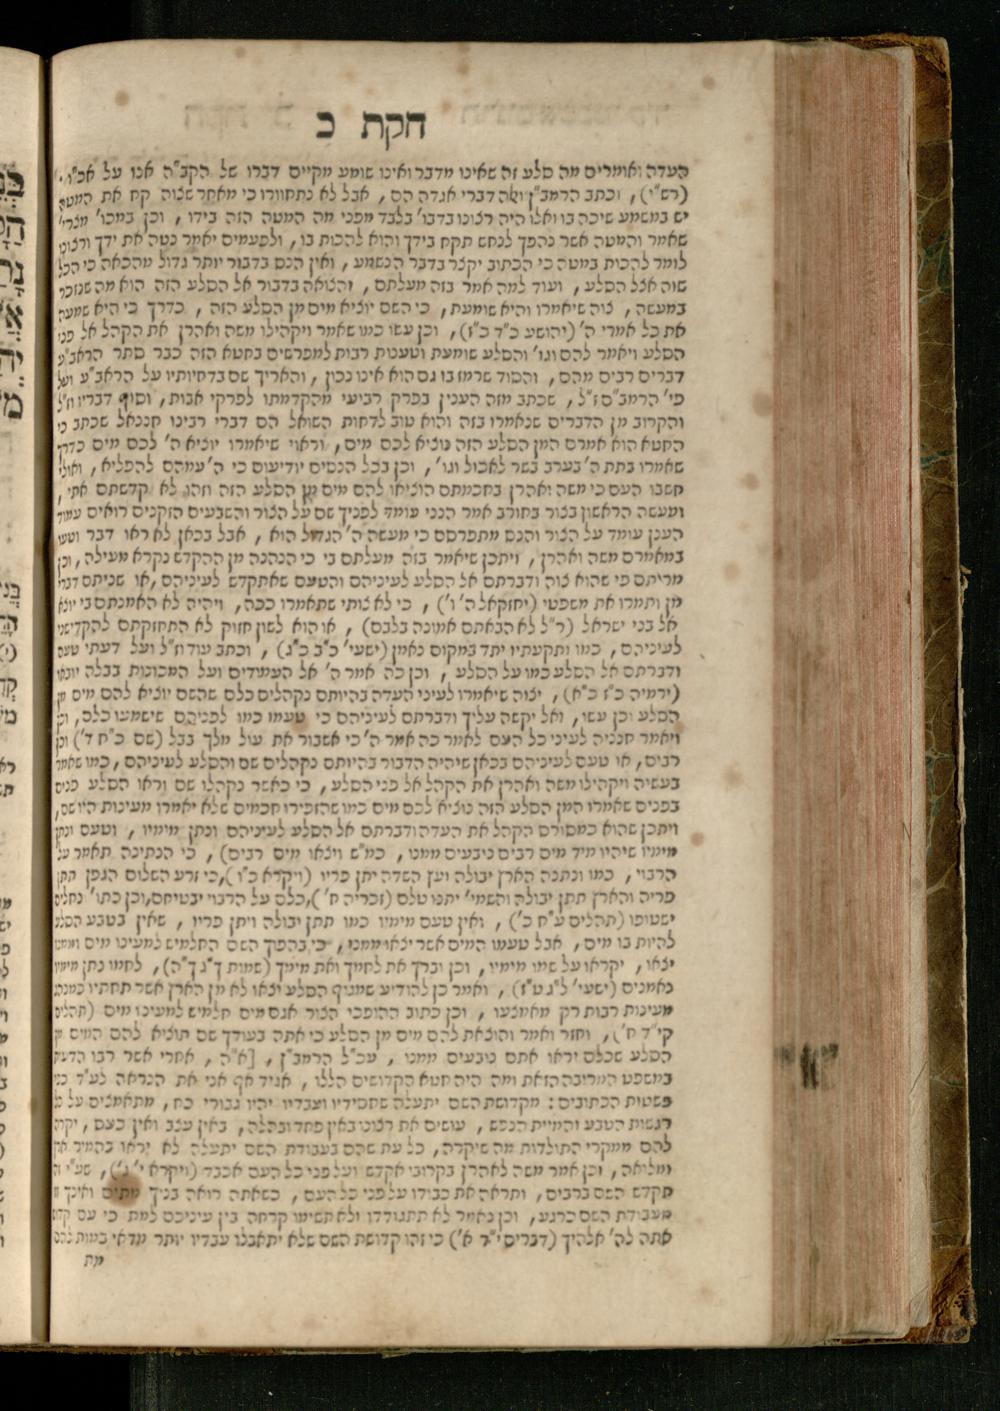 חקת כ
העדה ואומרים מה סלע זה שאינו מדבר ואינו שומע מקיים דברו של הקב"ה אנו על אכ"ו
(רש"י), וכתב הרמב"ן ואלה דברי אגדה הם, אבל לא נתחוורו כי מאחר שצוה קח את המטה
יש במשמע שיכה בו ואלו היה רצונו בדבו' בלבד מפני מה המטה הזה בידו, וכן במכו' מצרי'
שאמר והמטה אשר נהפך לנחש תקח בידך והוא להכות בו, ולפעמים יאמר נטה את ידך ורצונו
לומר להכות במטה כי הכתוב יקצר בדבר הנשמע, ואין הנס בדבור יותר גדול מהכאה כי הכל
שוה אצל הסלע, ועוד למה אמר בזה מעלתם, והצואה בדבור אל הסלע הזה הוא מה שנזכר
במעשה, צוה שיאמרו והיא שומעת, כי השם יוציא מים מן הסלע הזה, כדרך כי היא שמעה
את כל אמרי ה' (יהושע כ"ד כ"ז), וכן עשו כמו שאמר ויקהילו משה ואהרן את הקהל אל פני
הסלע ויאמר להם וגו' והסלע שומעת וטענות רבות למפרשים בחטא הזה כבר סתר הראב"ע
דברים רבים מהם, והסוד שרמז בו גם הוא איננו נכון, והאריך שם בדחיותיו על הראב"ע ועל
פי' הרמב"ם ז"ל, שכתב מזה הענין בפרק רביעי מהקדמתו לפרקי אבות, וסוף דבריו וז"ל
והקרוב מן הדברים שנאמרו בזה והוא טוב לדחות השואל הם דברי רבינו חננאל שכתב כי
החטא הוא אמרם המן הסלע הזה נוציא לכם מים, וראוי שיאמרו יוציא ה' לכם מים כדרך
שאמרו בתת ה' בערב בשר לאכול וגו', וכן בכל הנסים יודיעום כי ה' עמהם להפליא, ואולי
חשבו העם כי משה ואהרן בחכמתם הוציאו להם מים מן הסלע הזה וזהו לא קדשתם אתי,
ומעשה הראשון בצור בחורב אמר הנני עומד לפניך שם על הצור והשבעים הזקנים רואים עמוד
הענן עומד על הצור והנס מתפרסם כי מעשה ה' הגדול הוא, אבל בכאן לא ראו דבר וטעו
במאמרם משה ואהרן, ויתכן שיאמר בזה מעלתם בי כי הנהנה מן ההקדש נקרא מעילה, וכן
מריתם פי שהוא צוה ודברתם אל הסלע לעיניהם והטעם שאתקדש לעיניהם, או שניתם דברי
מן ותמרו את משפטי (יחזקאל ה' ו'), כי לא צותי שתאמרו ככה, ויהיה לא האמנתם בי יוצא
אל בני ישראל (ר"ל לא הבאתם אמונה בלבם), או הוא לשון חזוק לא התחזקתם להקדישני
לעיניהם, כמו ותקעתיו יתד במקום נאמן (ישעי' כ"ב כ"ג), וכתב עוד וז"ל ועל דעתי טעם
ודברתם אל הסלע כמו על הסלע, וכן כה אמר ה' אל העמודים ועל המכונות בבלה יובאו
(ירמיה כ"ז כ"א), יצוה שיאמרו לעיני העדה בהיותם נקהלים כלם שהשם יוציא להם מים מן
הסלע וכן עשו, ואל יקשה עליך ודברתם לעיניהם כי טעמו כמו לפניהם שישמעו כלם, וכן
ויאמר חנניה לעיני כל העם לאמר כה אמר ה' כי אשבור את עול מלך בבל (שם כ"ח ד') וכן
רבים, או טעם לעיניהם בכאן שיהיה הדבור בהיותם נקהלים שם והסלע לעיניהם, כמו שאמר
בעשיה ויקהילו משה ואהרן את הקהל אל פני הסלע, כי כאשר נקהלו שם וראו הסלע פנים
בפנים שאמרו המן הסלע הזה נוציא לכם מים כמו שהזכירו חכמים שלא יאמרו מעינות היו שם,
ויתכן שהוא כמסורס הקהל את העדה ודברתם אל הסלע לעיניהם ונתן מימיו, וטעם ונתן
מימיו שיהיו מיד מים רבים נובעים ממנו, כמ"ש ויצאו מים רבים), כי הנתינה תאמר על
הרבוי, כמו ונתנה הארץ יבולה ועץ השדה יתן פריו (ויקרא כ"ו), כי זרע השלום הגפן תתן
פריה והארץ תתן יבולה והשמי' יתנו טלם (זכריה ח'), כלם על הרבוי יבטיחם, וכן כתו' נחלים
ישטופו (תהלים ע"ח כ'), ואין טעם מימיו כמו תתן יבולה ויתן פריו, שאין בטבע הסלע
להיות בו מים, אבל טעמו המים אשר יצאו ממנו, כי בהפוך השם החלמיש למעינו מים וממנו
יצאו, יקראו על שמו מימיו, וכן וברך את לחמך ואת מימיך (שמות ך"ג ך"ה), לחמו נתן מימיו
נאמנים (ישעי' ל"ג ט"ז), ואמר כן להודיע שמגוף הסלע יצאו לא מן הארץ אשר תחתיו כמנהג
מעינות רבות רק מאמצעו, וכן כתוב ההופכי הצור אגם מים חלמיש למעינו מים (תהלים
קי"ד ח'), וחזר ואמר והוצאת להם מים מן הסלע כי אתה בעודך שם תוציא להם המים מן
הסלע שכלם יראו אתם נובעים ממנו, עכ"ל הרמב"ן, [א"ה, אחרי אשר רבו הדעת
במשפט המריבה הזאת ומה היה חטא הקדושים הללו, אגיד אף אני את הנראה לע"ד כפי
פשטית הכתובים: מקדושת השם יתעלה שחסידיו ועבדיו יהיו גבורי כח, מתאמצים על כל
רגשות הטבע והמיית הנפש, עושים את רצונו באין פחד ובהלה, באין עצב ואין כעם, יקרה
להם ממקרי התולדות מה שיקרה, כל עת שהם בעבודת השם יתעלה לא יראו בהמיד אף
ומלואה, וכן אמר משה לאהרן בקרובי אקדש ועל פני כל העם אכבד (ויקרא י' ג'), שע"י זה
תקדש השם ברבים, ותראה את כבודו על פני כל העם, כשאתה רואה בניך מתים ואינך
מעבודת השם כרגע, וכן נאמר לא תתגודדו ולא תשימו קרחה בין עיניכם למת כי עם קדש
אתה לה' אלהיך (דברים י"ד א') כי זהו קדושת השם שלא יתאבלו עבדיו יותר מדאי במות להם
מת